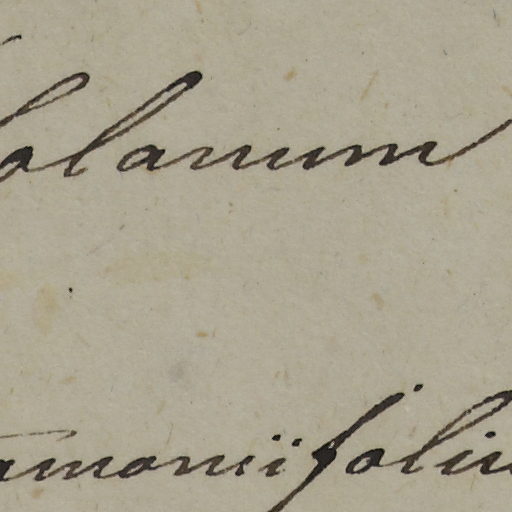 Solanum
amoniifoliu